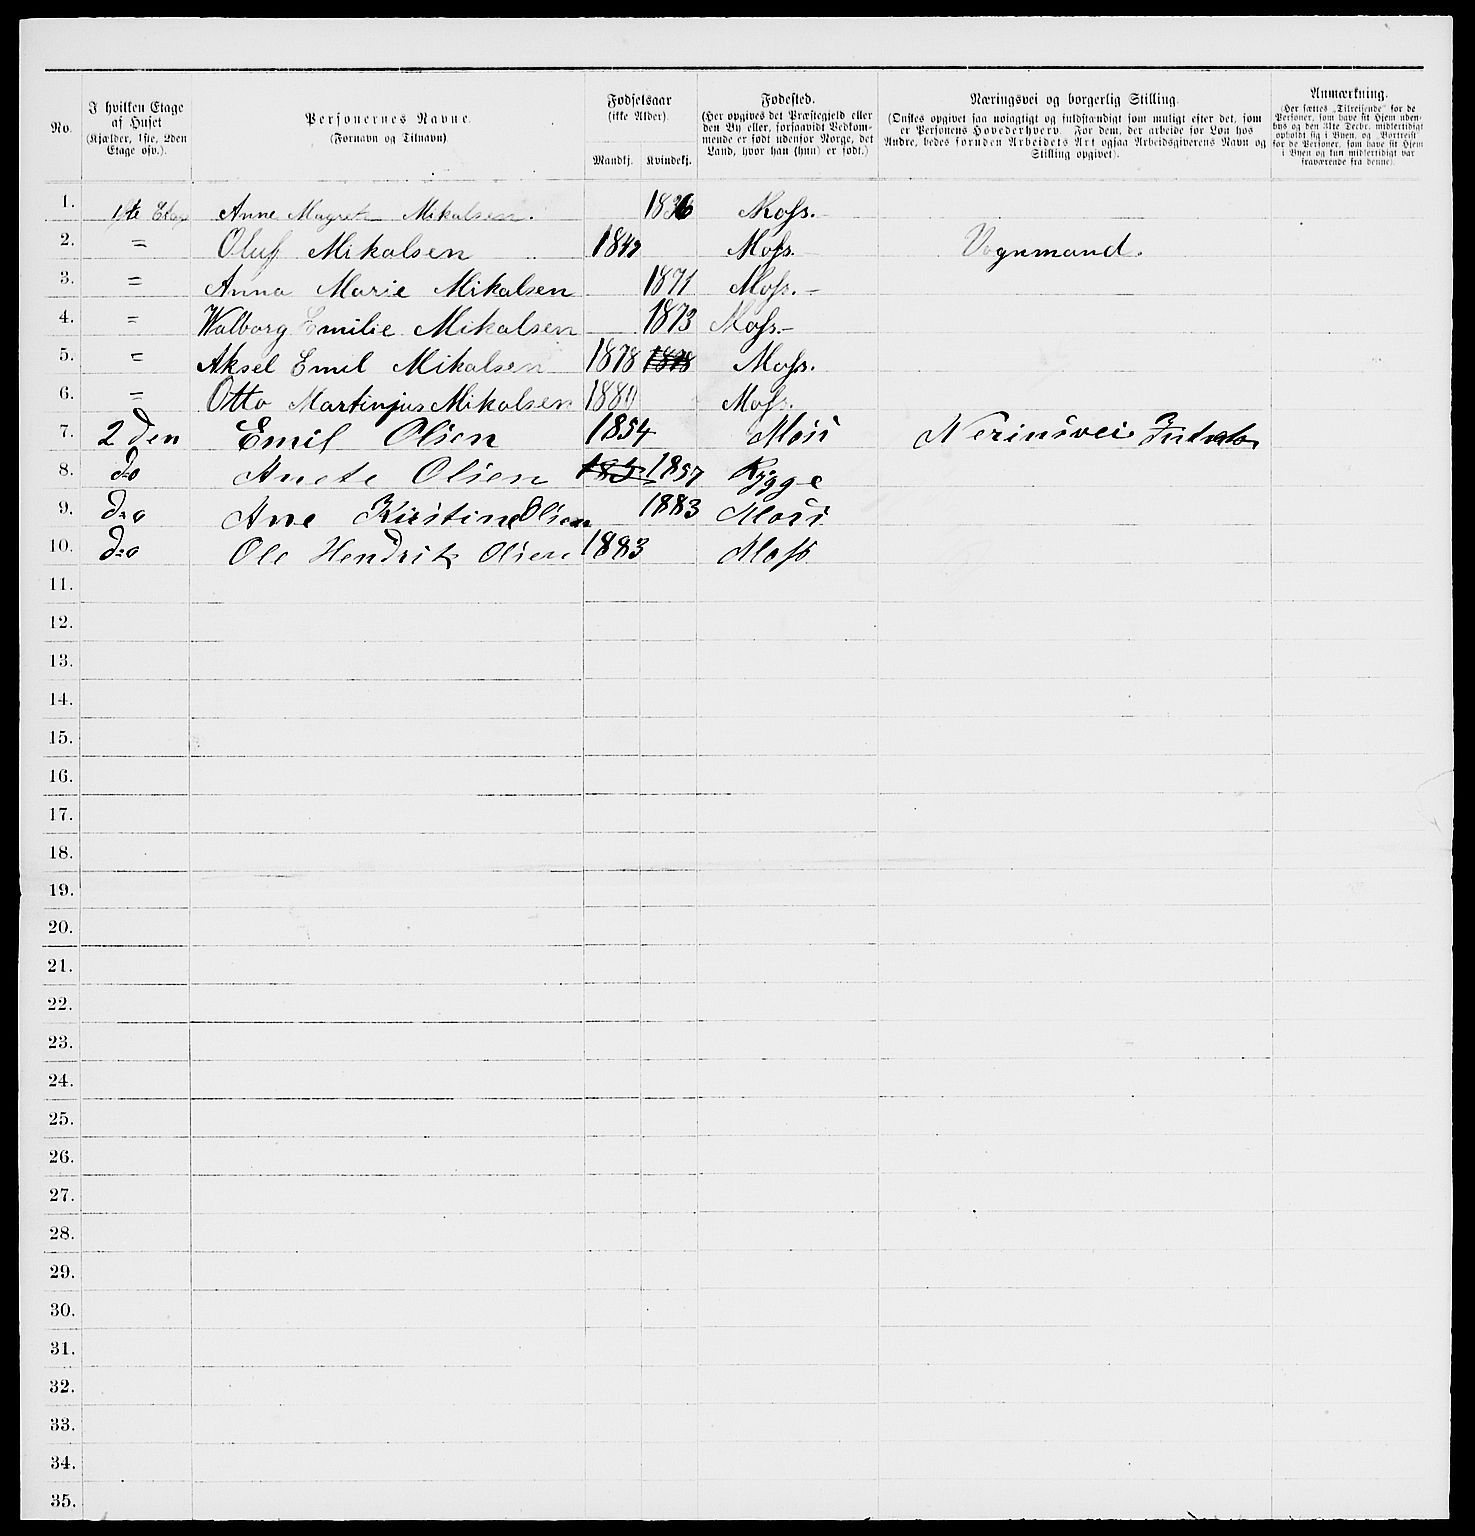 No.
I hvilken Etage af Huset (Kjælder, 1ste, 2den Etage osv.).
Personernes Navne. (Fornavn og Tilnavn)
Fødselsaar (ikke Alder).
Mandkj. Kvindekj.
Fødested. (Her opgives det Præstegjeld eller den By eller, forsaavidt Vedkommende er født udenfor Norge, det Land, hvor han (hun) er født.)
Næringsvei og borgerlig Stilling. (Ønskes opgivet saa nøiagtigt og fuldstændigt som muligt efter det, som er Personens Hovederhverv. For dem, der arbeide for Løn hos Andre, bedes foruden Arbeidets Art ogsaa Arbeidsgiverens Navn og Stilling opgivet).
Anmærkning. (Her sættes „Tilreisende" for de Personer, som have sit Hjem udenbys og den 31te Decbr. midlertidigt opholdt sig i Byen, og „Bortreist" for de Personer, som have sit Hjem i Byen og kun midlertidigt var fraværende fra denne).
1. 1ste Etage Anne Magrete Mikalsen. 1836 Moss.
2. = Oluf Mikalsen 184 Moss. Vognmand.
3. = Anna Marie Mikalsen 1871 Moss.
4. = Walborg Emilie Mikalsen 1873 Moss.
5. = Aksel Emil Mikalsen 1878 1878 Moss.
6. = Otto Martinjus Mikalsen 1880 Moss.
7. 2den Emil Olsen 1854 Moss Nerinsvei
8. do Anete Olsen 1857 Rygge
9. do Ane Kirstine Olsen 1883 Moss
10. do Ole Hendrik Olsen 1883 Moss
11.
12.
13.
14.
15.
16.
17.
18.
19.
20.
21.
22.
23.
24.
25.
26.
27.
28.
29.
30.
31.
32.
33.
34.
35.